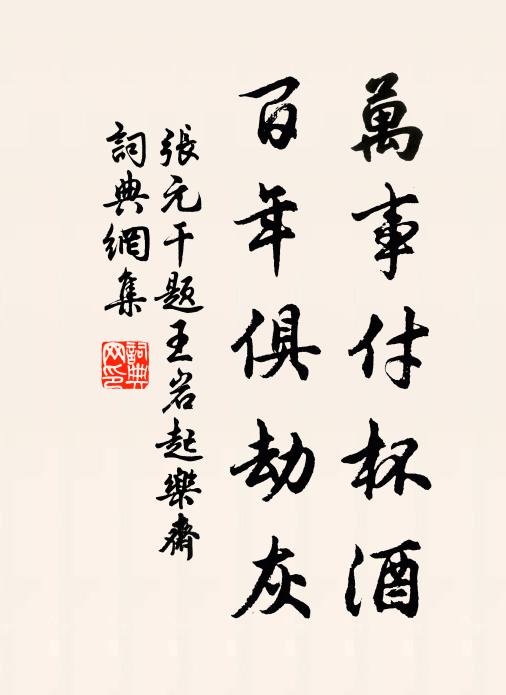 萬事付杯酒
百年俱劫灰
張元干題王岩起樂齋
詞典網集
詞典網印